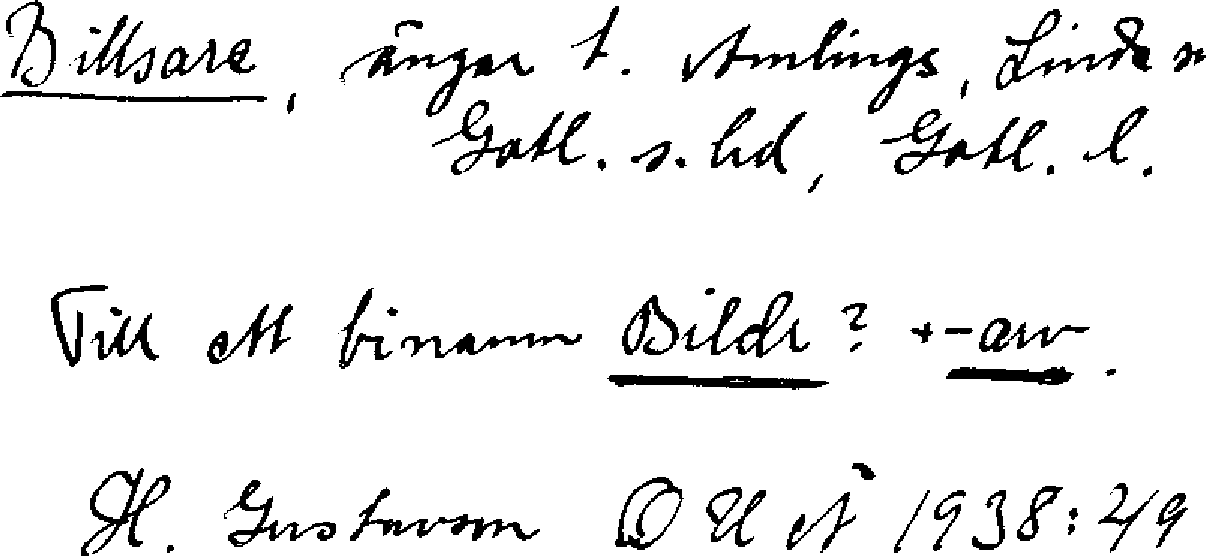 Billsare, ängar t. Amlings, Linde sn
Gotl. s. hd, Gotl. l.
Till ett binamn Bilde? + -arv.
H. Gustavson OUÅ 1938:49